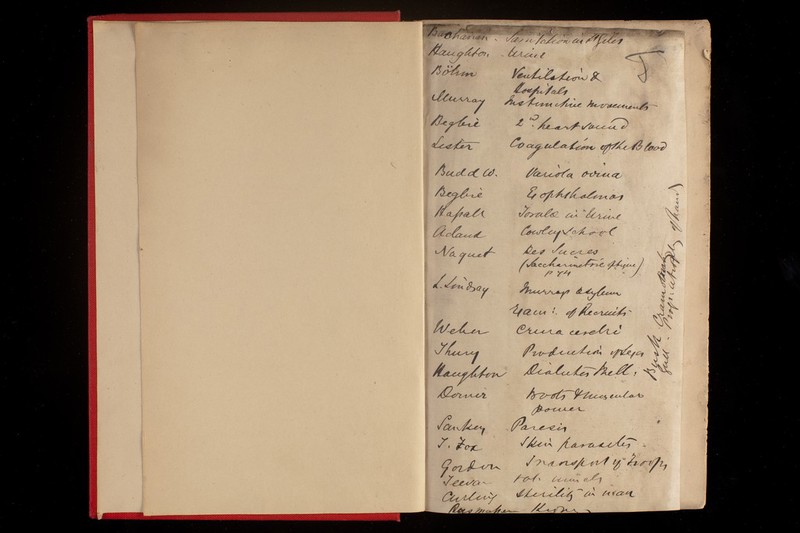 Buchanan - 
Haughton - Urine
Böhm Ventilation &
Hospitals
Murray Instinctive movements
Begbie 2nd heart sound
Lister Coagulation of the Blood
Budd W. Variola ovina
Begbie Exophthalmos
Hassall in Urine
Acland Cowley School
Naquet Des Sucres
(Saccharimetrie optique)
L. Lindsay Murray's Asylum
Exam: of Recruits
Weber Crura cerebri
Thury Production of Sexes
Haughton Diabetes Mell.
Dorner Boots & Muscular
power
Sankey Paresis
T. Fox Skin parasites -
Gordon Transport of Troops
Teevan
Curling Sterility in man
Rasmussen
Bush
Prog. atrophy of hand)